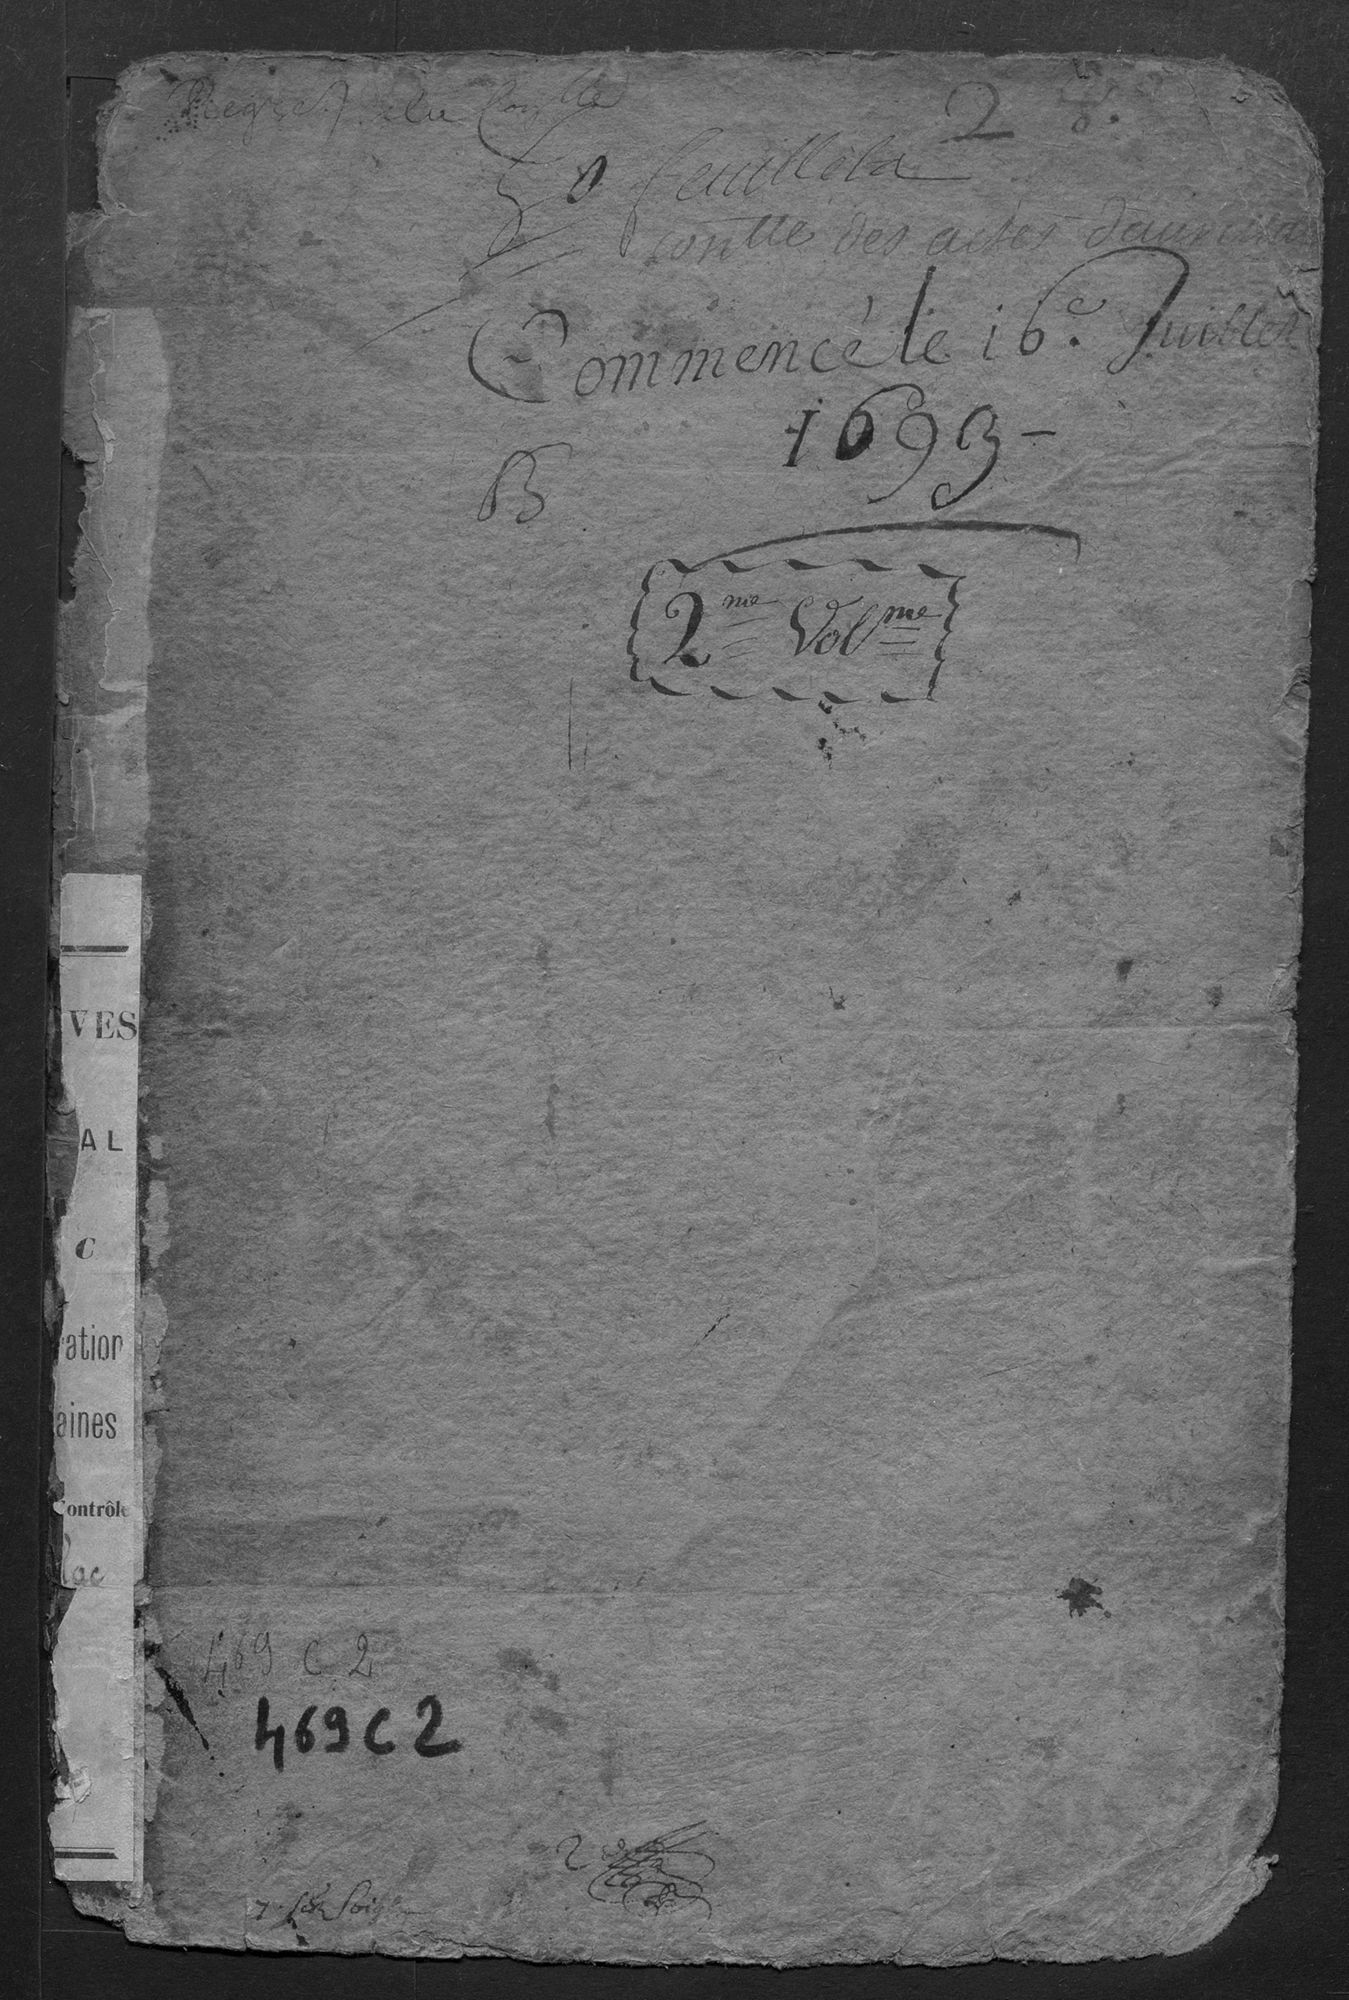 Regist du Conlle
2
50 feuillets
Contlle des actes d'aurillac
Commencé le 16e. Juillet
1693 -
B
2me Volme
VES
AL
C
ration
aines
Contrôle
lac
469 C 2
469 C 2
2